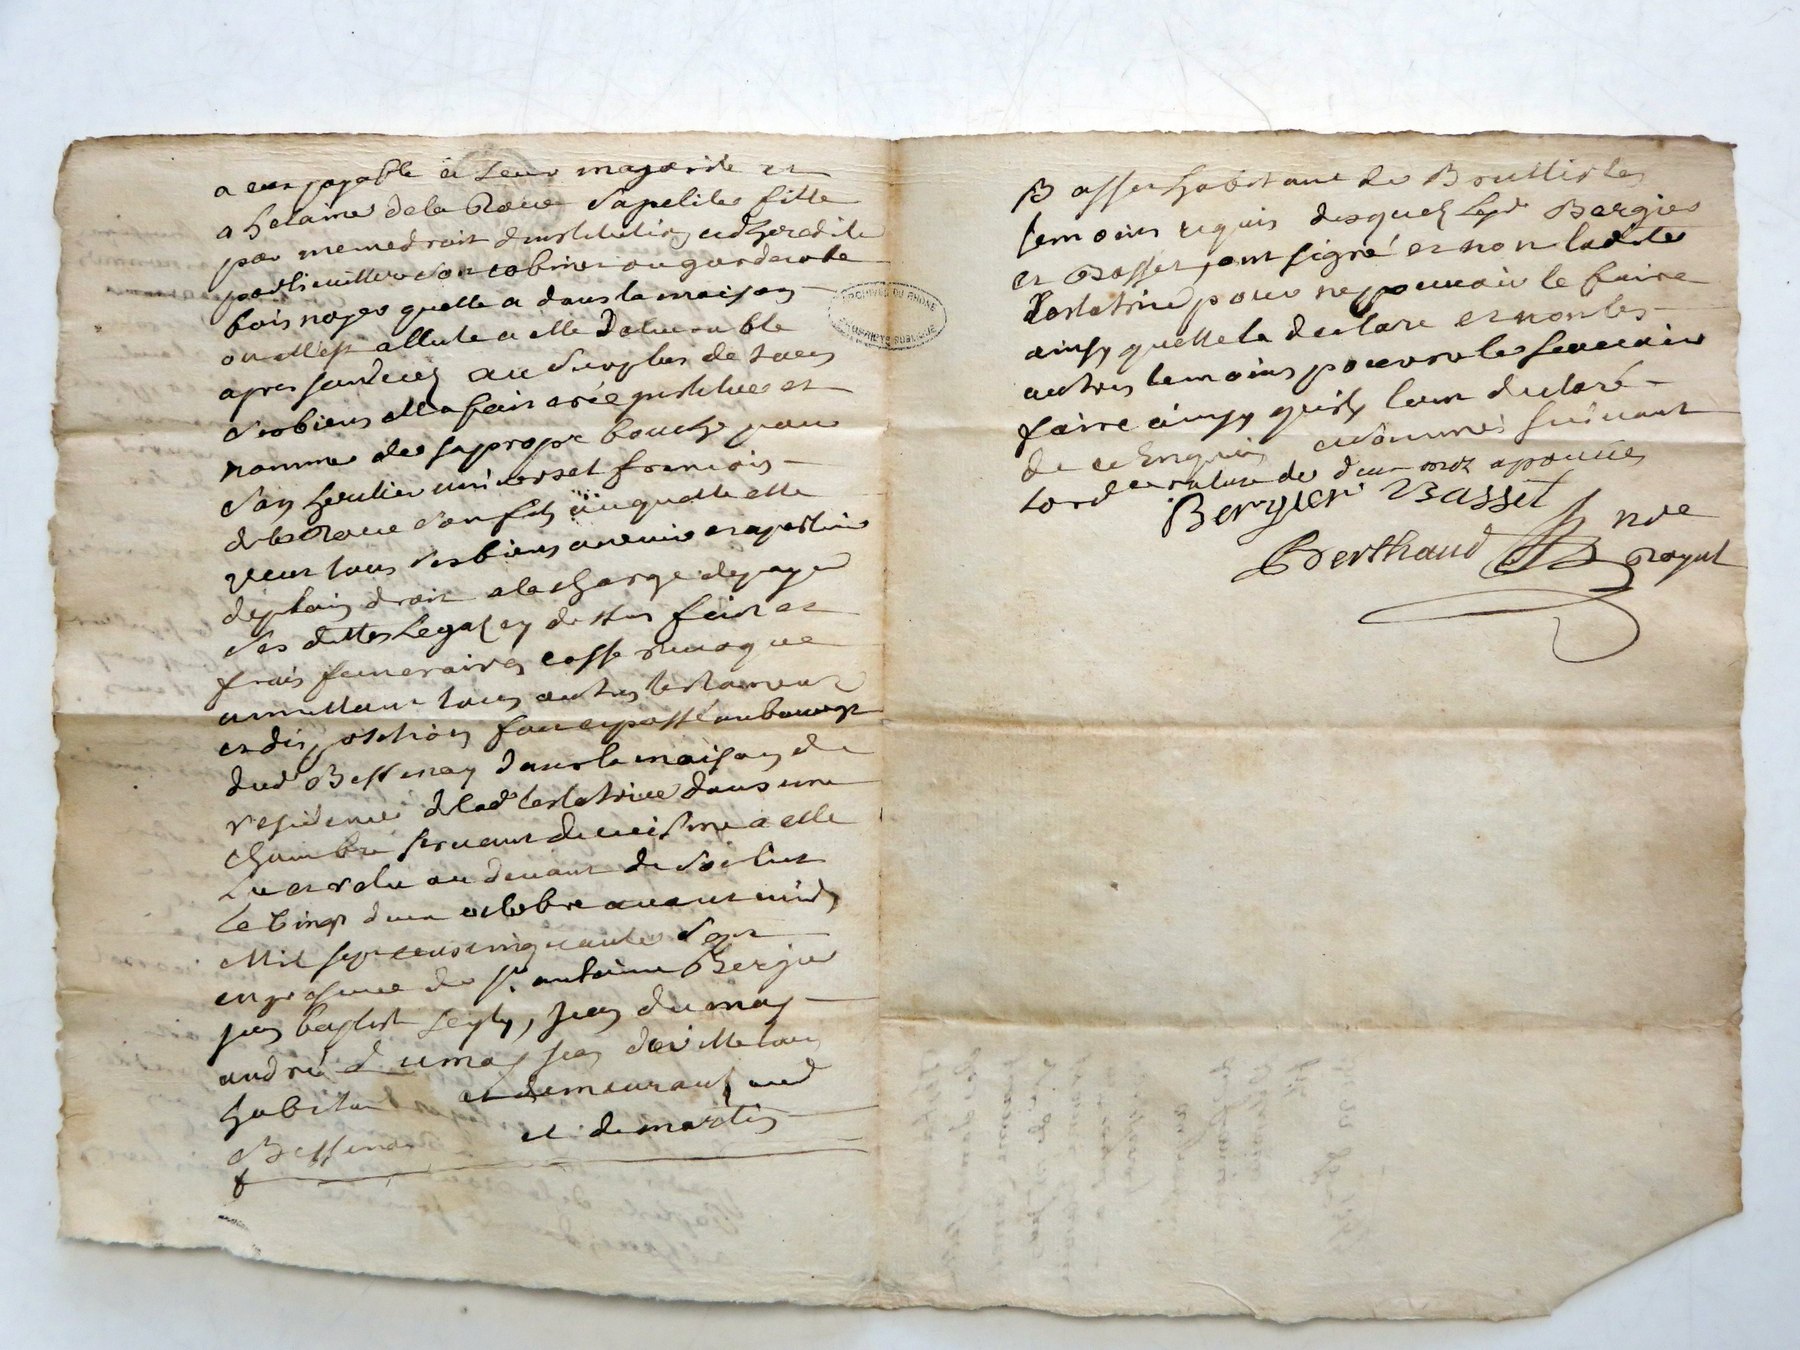 a eux payable a leur majorité et
a Helaine de la Roue sa petite fille
par meme droit dinstitution et dheredité
particuilliere son cabinet ou garderobe
bois noyer quelle a dans la maison
ou elle est a elle delivrable
apres son deces au surplus de tous
ses biens elle a fait créé institué et
nommé de sa propre bouche pour
son heritier universel francois
de la Roue son fils auquel elle
veut tous ses biens avenir et apartenir
de plain droit a la charge de payer
ses dettes legas cy dessus fait et
frais funeraires casse revoque
annullant tous autres testament
et disposition fait et passé au bourg
dud Bessenay dans la maison de
residence de lad testatrice dans une
chambre servant de cuisine a elle
Lu et relu au devant de son lit
Le vingt deux octobre avant midy
Mil sept cens cinquante sept
en presence de sr antoine Bergier
jean baptiste, jean dumas
andré dumas jean deville tous
habitan et demeurant aud
Bessenay et de martin
ARCHIVES DU RHONE
PROPRIETE PUBLIQUE
Basset habitant de Brullioles
temoins requis desquels led Bergier
et Basset ont signé et non ladite
testatrice pour ne pouvoir le faire
ainsy quelle la declare et non les
autres temoins pour ne le scavoir
faire ainsy quils lont declaré
de ce Enquis et sommés suivant
lord la rature de deux mots aprouvée
Bergier Basset
Berthaud nre
Royal